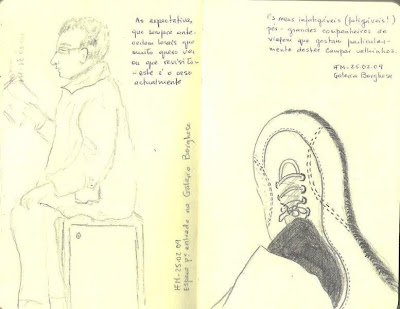 As expectativas,
que sempre ante-
cedem locais que
muito quero ver
ou que revisito -
- este é o caso
actualmente
HM - 25.02.09
Espaço pª entrada na Galeria Borghese
Os meus infatigáveis (fatigáveis!)
pés - grandes companheiros de
viagem que gostam particular-
mente destes campar velhinhos.
HM - 25.02.09
Galeria Borghese